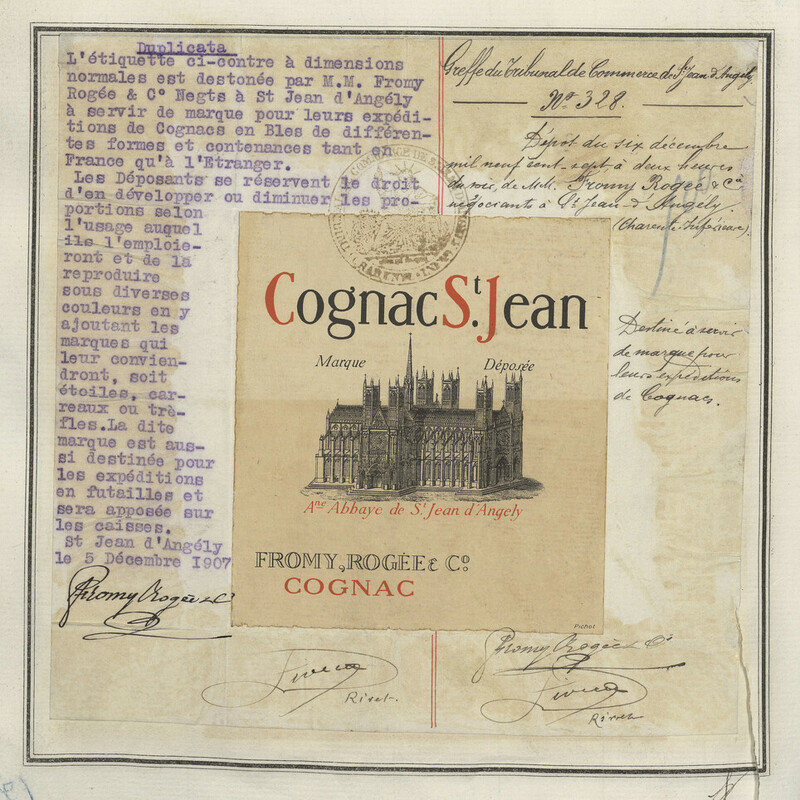 Duplicata
L'étiquette ci-contre à dimensions
normales est destonée par M.M. Fromy
Rogée & C° Negts à St Jean d'Angély
à servir de marque pour leurs expédi-
tions de Cognacs en Bles de différen-
tes formes et contenances tant en
France qu'à l'Etranger.
Les Déposants se réservent le droit
d'en développer ou diminuer les pro-
portions selon
l'usage auquel
ils l'emploie-
ront et de la
reproduire
sous diverses
couleurs en y
ajoutant les
marques qui
leur convien-
dront, soit
étoiles, car-
reaux ou trè-
fles.La dite
marque est aus-
si destinée pour
les expéditions
en futailles et
sera apposée sur
les caisses.
St Jean d'Angély
le 5 Décembre 1907
Fromy Rogée & C°
Greffe du Tribunal de Commerce de St Jean d'Angély.
N° 328.
Dépôt du six décembre
mil neuf cent sept à deux heures
du soir, de M.M. Fromy Rogée & C°
négociants à St Jean-d'Angély.
(Charente Inférieure).
Destiné à servir
de marque pour
leurs expéditions
de Cognacs.
Cognac St. Jean
Marque Déposée
Ane Abbaye de St Jean d'Angely
FROMY, ROGÉE & Co.
COGNAC
Pichot
Fromy Rogée & C°